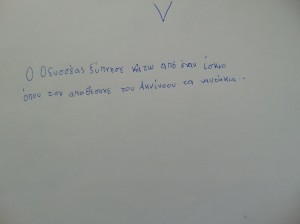 V
Ο Οδυσσέας ξύπνησε κάτω από έναν ίσκιο
όπου τον απόθεσαν του Αλκίνοου τα ναυτάκια...